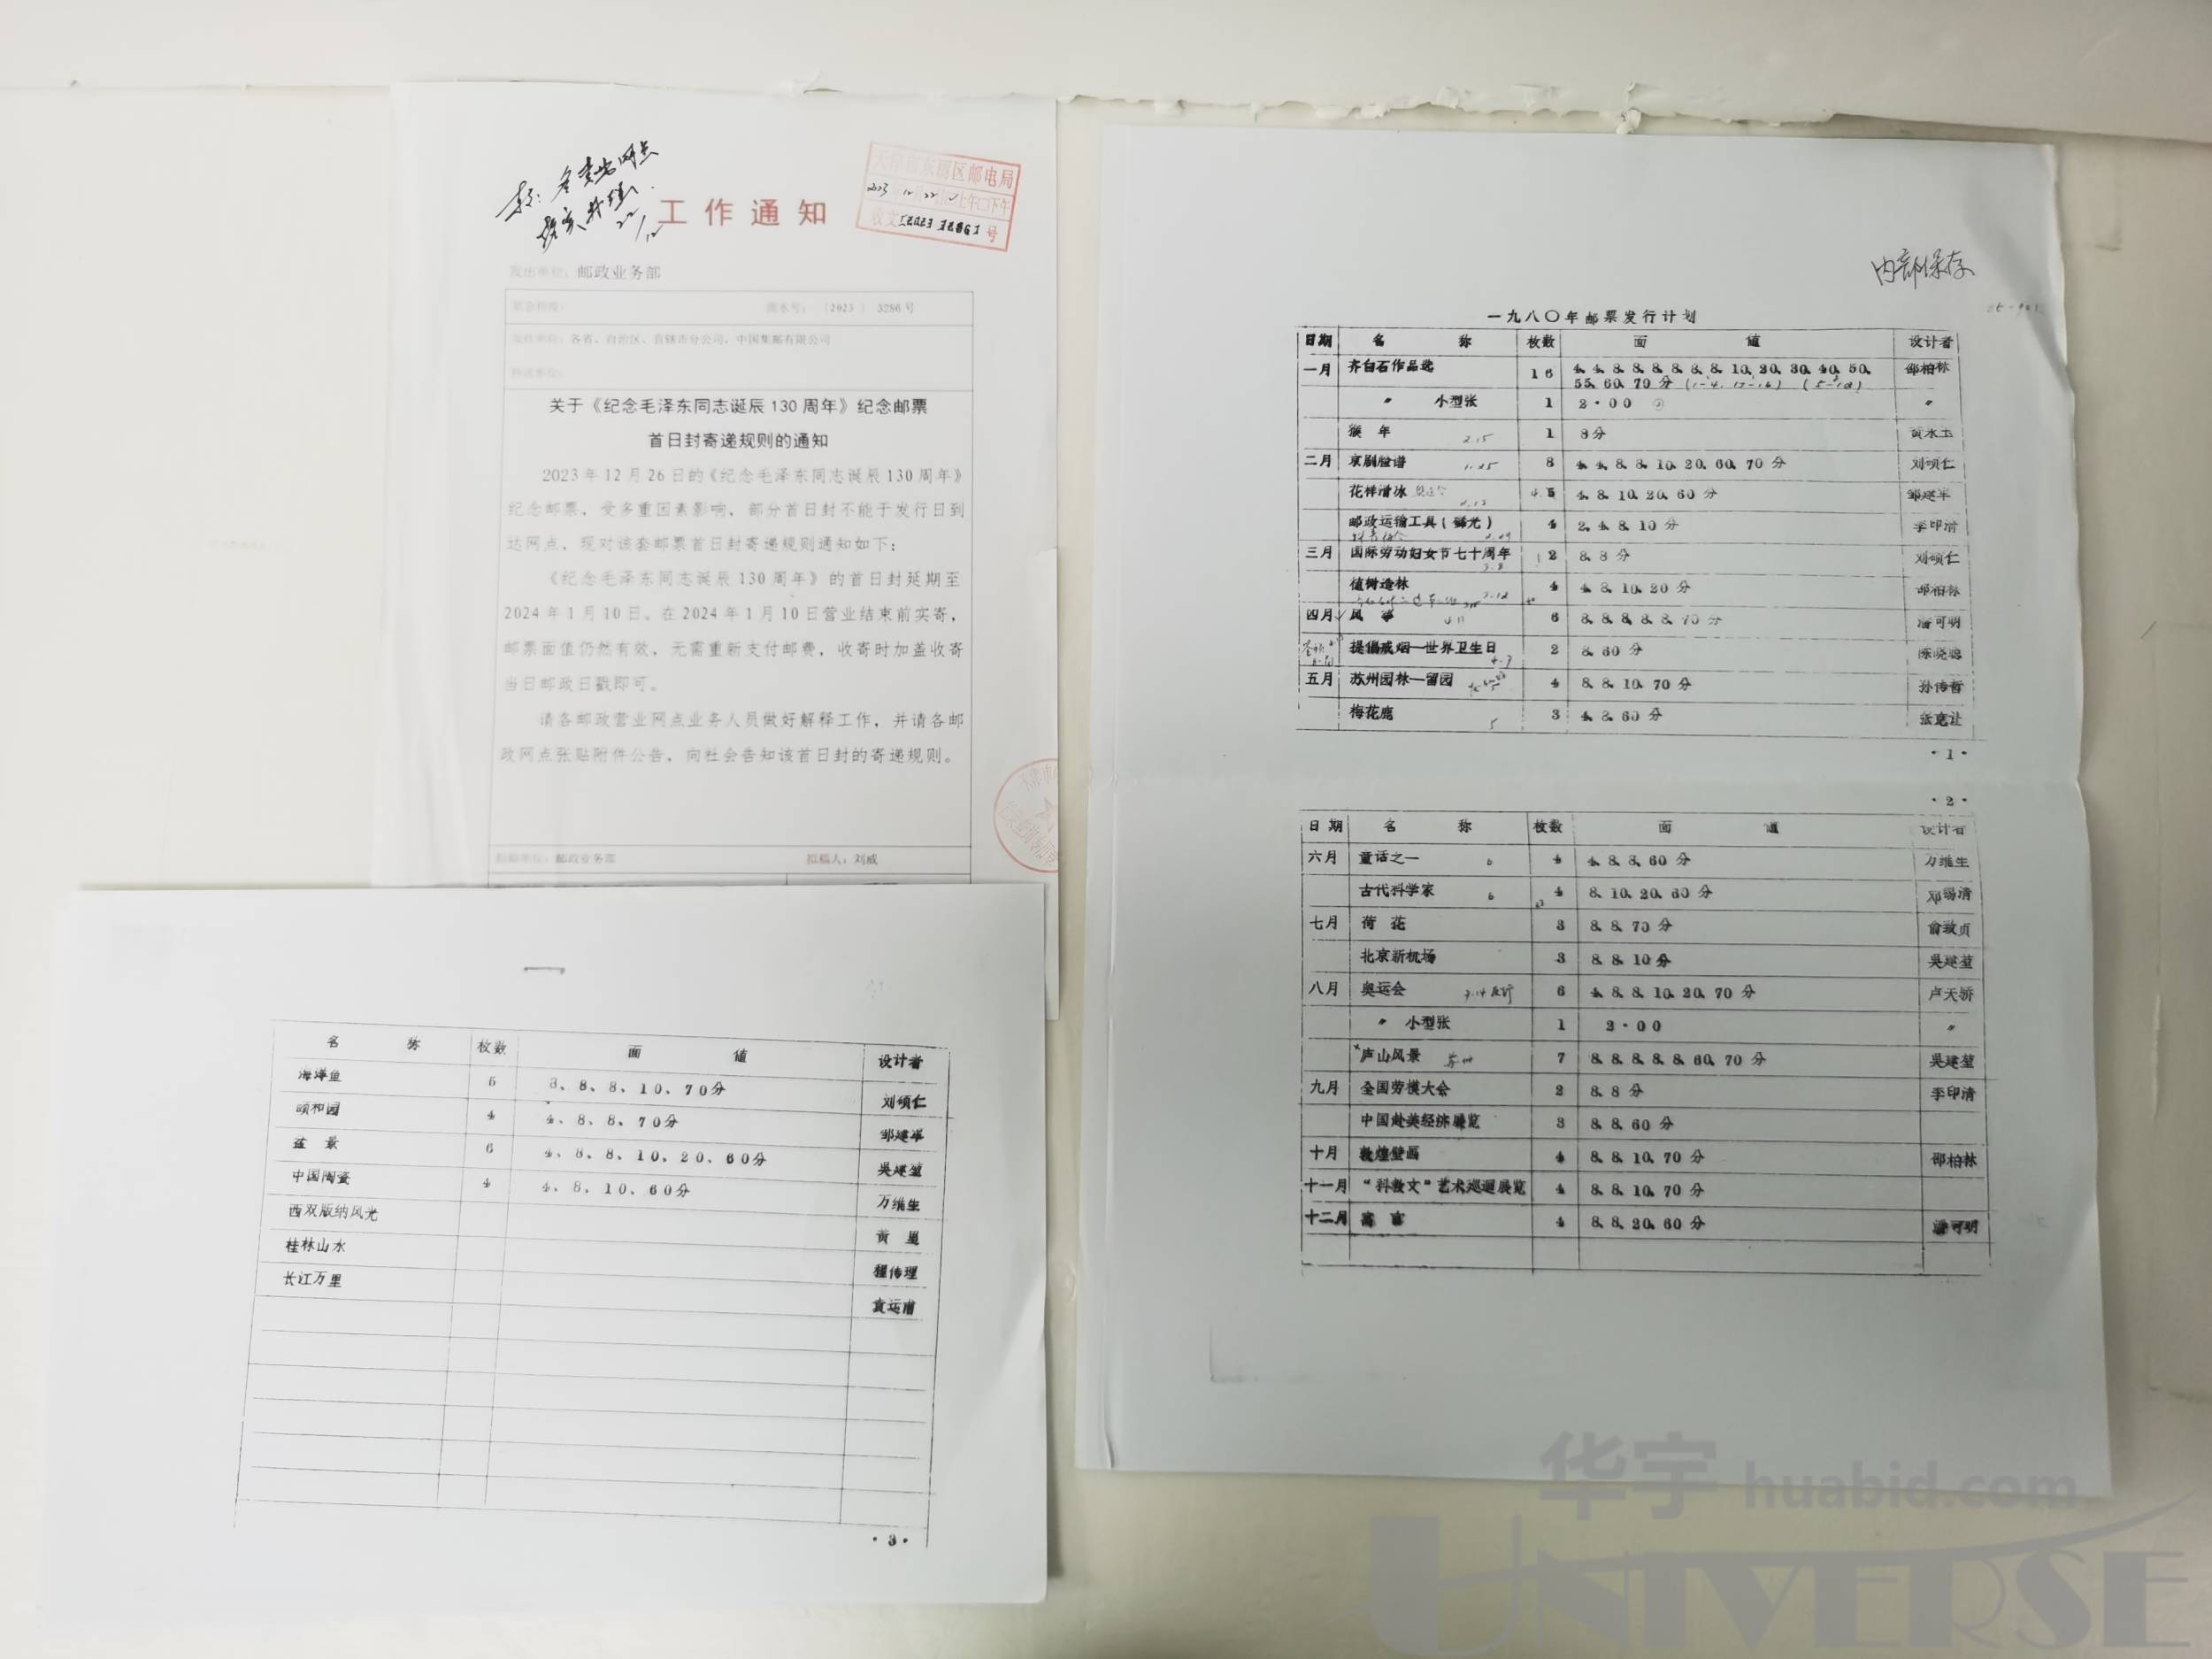 工作通知
天津市东丽区邮电局
2023 12 22
收文 号
发出单位：邮政业务部
流水号：（2023）3286号
发往单位：各省、自治区、直辖市分公司，中国集邮有限公司
抄送单位：
关于《纪念毛泽东同志诞辰130周年》纪念邮票
首日封寄递规则的通知
2023年12月26日的《纪念毛泽东同志诞辰130周年》
纪念邮票，受多重因素影响，部分首日封不能于发行日到
达网点，现对该套邮票首日封寄递规则通知如下：
《纪念毛泽东同志诞辰130周年》的首日封延期至
2024年1月10日。在2024年1月10日营业结束前实寄，
邮票面值仍然有效，无需重新支付邮费，收寄时加盖收寄
当日邮政日戳即可。
请各邮政营业网点业务人员做好解释工作，并请各邮
政网点张贴附件公告，向社会告知该首日封的寄递规则。
拟稿单位：邮政业务部 拟稿人：刘威
名 称 枚数 面 值 设计者
海洋鱼 5 8、8、8、10、70分 刘硕仁
颐和园 4 4、8、8、70分 邹建军
盆 景 6 4、8、8、10、20、60分 吴建堃
中国陶瓷 4 4、8、10、60分 万维生
西双版纳风光 黄 里
桂林山水 程传理
长江万里 袁运甫
·3·
内部保存
一九八〇年邮票发行计划
日期 名 称 枚数 面 值 设计者
一月 齐白石作品选 16 4、4、8、8、8、8、8、8、10、20、30、40、50、 邵柏林
55、60、70分
〃 小型张 1 2·00 〃
猴 年 2.15 1 8分 黄永玉
二月 京剧脸谱 1.25 8 4、4、8、8、10、20、60、70分 刘硕仁
花样滑冰 5 4、8、10、20、60分 邹建军
邮政运输工具（磷光） 4 2、4、8、10分 李印清
三月 国际劳动妇女节七十周年 3.8 2 8、8分 刘硕仁
植树造林 3.12 4 4、8、10、20分 邵柏林
四月 风 筝 6 8、8、8、8、8、70分 潘可明
提倡戒烟—世界卫生日 4.7 2 8、60分 陈晓聪
五月 苏州园林—留园 4 8、8、10、70分 孙传哲
梅花鹿 5 3 4、8、60分 张克让
·1·
·2·
日期 名 称 枚数 面 值 设计者
六月 童话之一 6 4 4、8、8、60分 万维生
古代科学家 6 4 8、10、20、60分 邓锡清
七月 荷 花 3 8、8、70分 俞致贞
北京新机场 3 8、8、10分 吴建堃
八月 奥运会 6 4、8、8、10、20、70分 卢天骄
〃 小型张 1 2·00 〃
庐山风景 7 8、8、8、8、8、60、70分 吴建堃
九月 全国劳模大会 2 8、8分 李印清
中国赴美经济展览 3 8、8、60分
十月 敦煌壁画 4 8、8、10、70分 邵柏林
十一月 “科教文”艺术巡迴展览 4 8、8、10、70分
十二月 寓 言 4 8、8、20、60分 潘可明
华宇 huabid.com
UNIVERSE